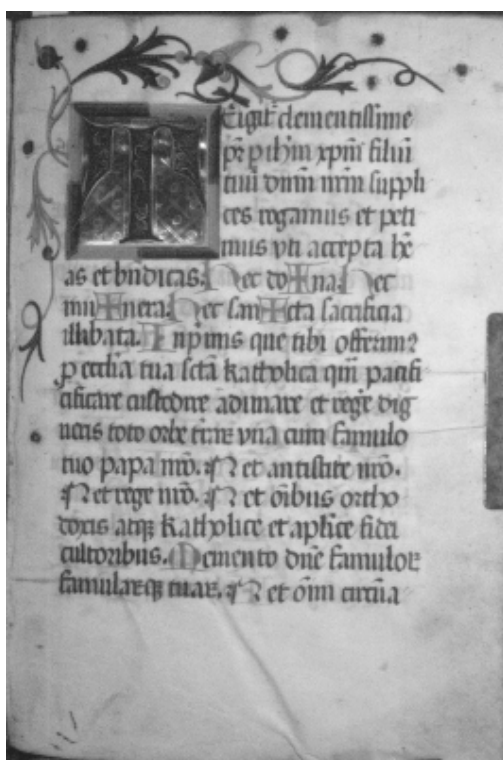 T E igit᷑ clementissime
pr̄ p ihm̄ xpm̄ filiū
tuū dnm̄ nrm̄ suppli
ces rogamus et peti
mus vti accepta hē
as et bn̄dicas. Hec do✝na. Hec
mu✝nera. Hec san✝cta sacrificia
illibata. Inp̄imis que tibi offerim⁹
ꝓ ecclīa tua sctā katholica qm̄ pacifi
cificare custodire adunare et rege᷑ dig
neris toto orbe tr̄aꝝ vna cum famulo
tuo papa nr̄o. N et antistite nr̄o.
N et rege nr̄o. N et oībus ortho
doxis atqꝫ katholice et aplīce fidei
cultoribus. Memento dnē famuloꝝ
famulaꝝqꝫ tuaꝝ. N et oīm circūa